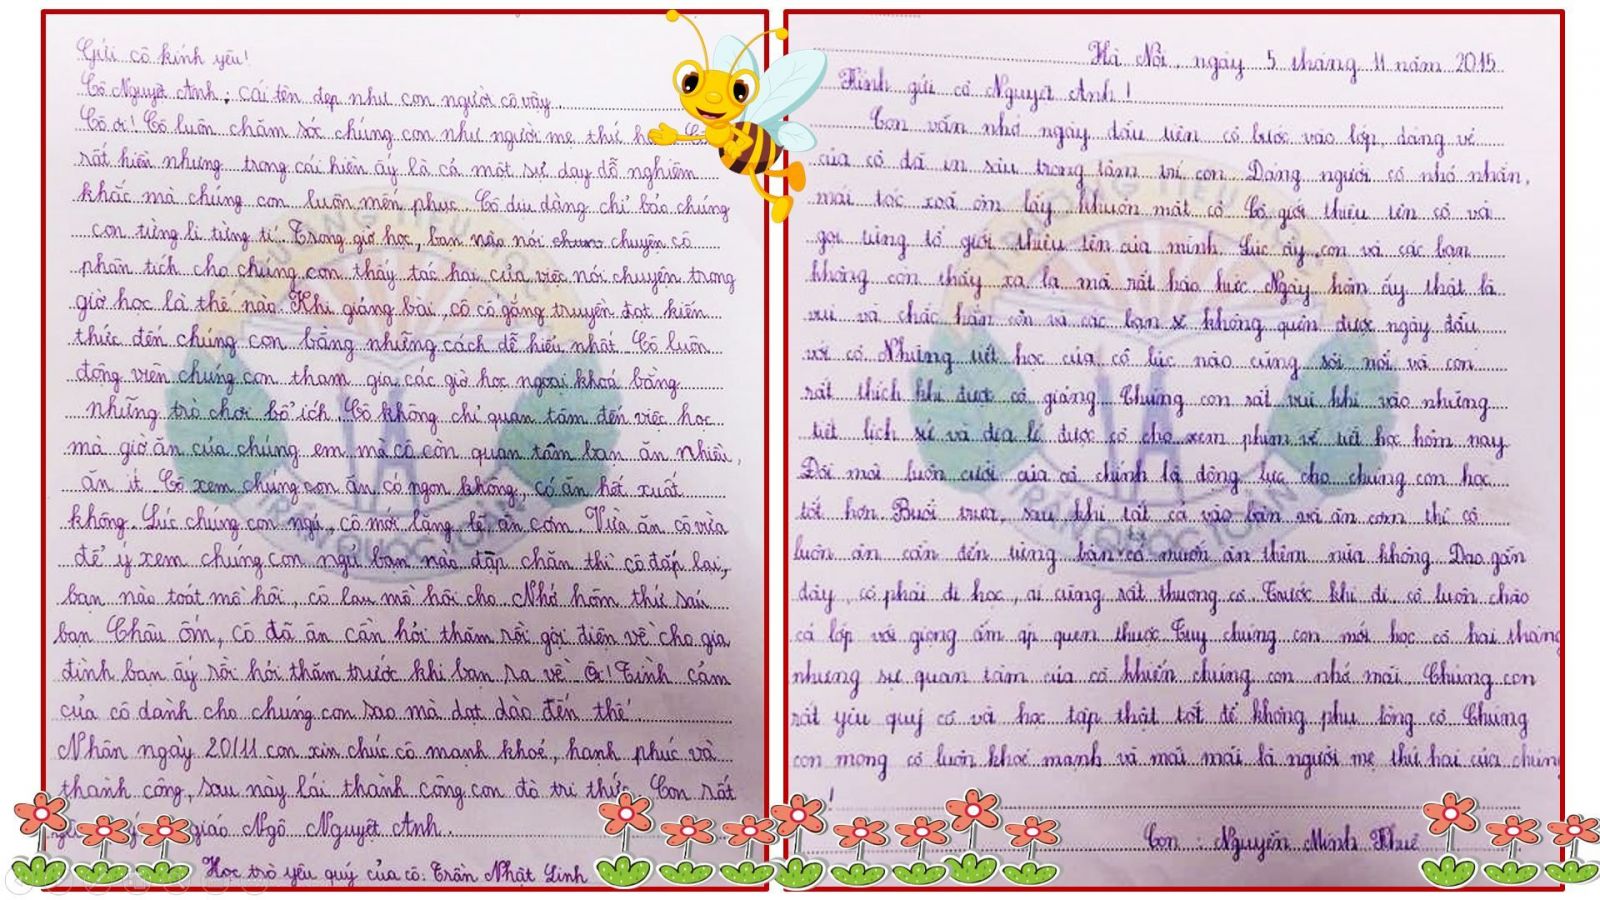 Gửi cô kính yêu!
Cô Nguyệt Anh; cái tên đẹp như con người cô vậy.
Cô ơi! Cô luôn chăm sóc chúng con như người mẹ thứ
rất hiền nhưng trong cái hiền ấy là cả một sự dạy dỗ nghiêm
khắc mà chúng con luôn mến phục. Cô dịu dàng chỉ bảo chúng
con từng li từng tí. Trong giờ học, bạn nào nói chuyện cô
phân tích cho chúng con thấy tác hại của việc nói chuyện trong
giờ học là thế nào. Khi giảng bài, cô cố gắng truyền đạt kiến
thức đến chúng con bằng những cách dễ hiểu nhất. Cô luôn
động viên chúng con tham gia các giờ học ngoại khoá bằng
những trò chơi bổ ích. Cô không chỉ quan tâm đến việc học
mà giờ ăn của chúng em mà cô còn quan tâm bạn ăn nhiều,
ăn ít. Cô xem chúng con ăn có ngon không, có ăn hết xuất
không. Lúc chúng con ngủ, cô mới lặng lẽ ăn cơm. Vừa ăn cô vừa
để ý xem chúng con ngủ bạn nào đạp chăn thì cô đắp lại,
bạn nào toát mồ hôi, cô lau mồ hôi cho. Nhớ hôm thứ sáu
bạn Châu ốm, cô đã ân cần hỏi thăm rồi gọi điện về cho gia
đình bạn ấy rồi hỏi thăm trước khi bạn ra về. Ôi! Tình cảm
của cô dành cho chúng con sao mà dạt dào đến thế.
Nhân ngày 20/11 con xin chúc cô mạnh khoẻ, hạnh phúc và
thành công, sau này lái thành công con đò tri thức. Con rất
giáo Ngô Nguyệt Anh.
Học trò yêu quý của cô: Trần Nhật Linh
Hà Nội, ngày 5 tháng 11 năm 2015
Kính gửi cô Nguyệt Anh!
Con vẫn nhớ ngày đầu tiên cô bước vào lớp, dáng vẻ
của cô đã in sâu trong tâm trí con. Dáng người cô nhỏ nhắn,
mái tóc xoã ôm lấy khuôn mặt cô. Cô giới thiệu tên cô và
gọi từng tổ giới thiệu tên của mình. Lúc ấy, con và các bạn
không còn thấy xa lạ mà rất háo hức. Ngày hôm ấy thật là
vui và chắc hẳn con và các bạn sẽ không quên được ngày đầu
với cô. Những tiết học của cô lúc nào cũng sôi nổi và con
rất thích khi được cô giảng. Chúng con rất vui khi vào những
tiết lịch sử và địa lí được cô cho xem phim về tiết học hôm nay.
Đôi môi luôn cười của cô chính là động lực cho chúng con học
tốt hơn. Buổi trưa, sau khi tất cả vào bàn và ăn cơm thì cô
luôn ân cần đến từng bàn có muốn ăn thêm nữa không. Dạo gần
đây, cô phải đi học, ai cũng rất thương cô. Trước khi đi, cô luôn chào
cả lớp với giọng ấm áp quen thuộc. Tuy chúng con mới học cô hai tháng
nhưng sự quan tâm của cô khiến chúng con nhớ mãi. Chúng con
rất yêu quý cô và học tập thật tốt để không phụ lòng cô. Chúng
con mong cô luôn khoẻ mạnh và mãi mãi là người mẹ thứ hai của chúng
!
Con: Nguyễn Minh Khuê
TRƯỜNG TIỂU HỌC
TRẦN QUỐC TOẢN
TRƯỜNG TIỂU HỌC
TRẦN QUỐC TOẢN